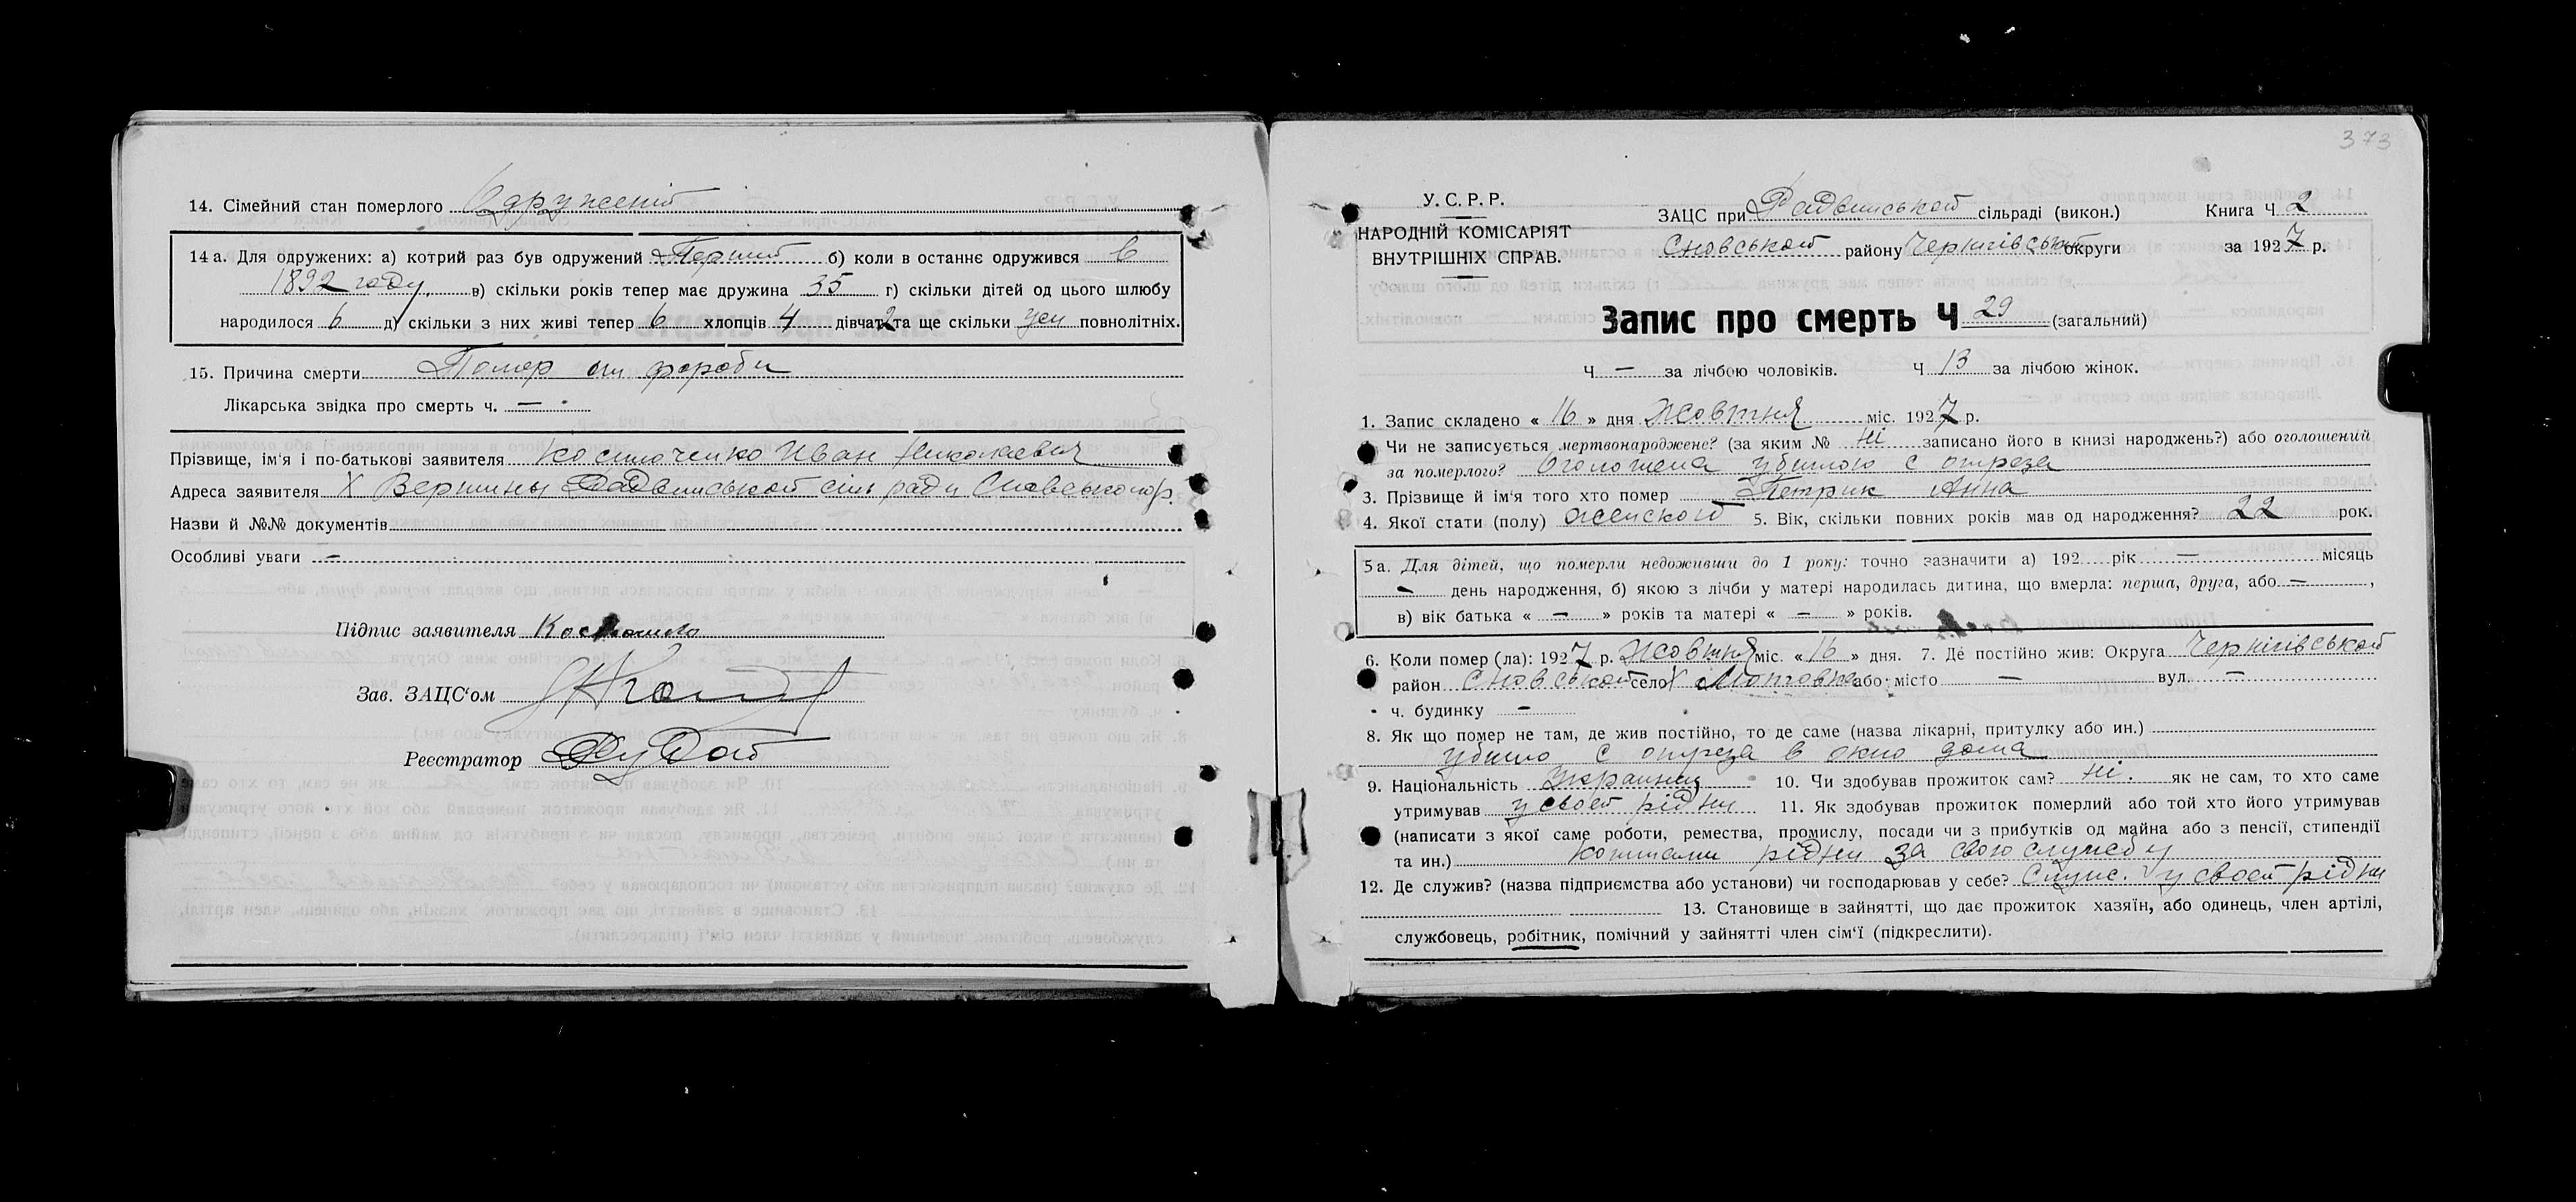 14. Сімейний стан померлого Одружений
14 а. Для одружених: а) котрий раз був одружений Перший б) коли в останнє одружився в
1892 году, в) скільки років тепер має дружина 35 г) скільки дітей од цього шлюбу
народилося 6 д) скільки з них живі тепер 6 хлопців 4 дівчат 2 та ще скільки уси повнолітніх.
15. Причина смерти Помер от фороби
Лікарська звідка про смерть ч. —
Прізвище, ім'я і по-батькові заявителя Иван Николаевич
Адреса заявителя Х Вершины сіль ради Сновського р.
Назви й №№ документів
Особливі уваги —
Підпис заявителя
Зав. ЗАЦС'ом
Реєстратор
373
У. С. Р. Р.
НАРОДНІЙ КОМІСАРІЯТ
ВНУТРІШНІХ СПРАВ.
ЗАЦС при сільраді (викон.) Книга Ч 2
Сновськой району Чернігівськой округи за 1927 р.
Запис про смерть Ч 29 (загальний)
Ч — за лічбою чоловіків. Ч 13 за лічбою жінок.
1. Запис складено « 16 » дня Жовтня міс. 1927 р.
Чи не записується мертвонароджене? (за яким № ні записано його в книзі народжень?) або оголошений
за померлого? Оголошена убитою с отреза
3. Прізвище й ім'я того хто помер Петрик Анна
4. Якої стати (полу) женской 5. Вік, скільки повних років мав од народження? 22 рок.
5 а. Для дітей, що померли недоживши до 1 року: точно зазначити а) 192 рік — місяць
— день народження, б) якою з лічби у матері народилась дитина, що вмерла: перша, друга, або — ,
в) вік батька « — » років та матері « — » років.
6. Коли помер (ла): 1927 р. Жовтня міс. « 16 » дня. 7. Де постійно жив: Округа Чернігівськой
район Сновськой село Х або місто — вул. —
ч. будинку —
8. Як що помер не там, де жив постійно, то де саме (назва лікарні, притулку або ин.)
убито с отреза в окно дома
9. Національність 10. Чи здобував прожиток сам? ні. як не сам, то хто саме
утримував у своей рідни 11. Як здобував прожиток померлий або той хто його утримував
(написати з якої саме роботи, ремества, промислу, посади чи з прибутків од майна або з пенсії, стипендії
та ин.) рідни за свою службу
12. Де служив? (назва підприємства або установи) чи господарював у себе? Служ. у своей рідни
13. Становище в зайнятті, що дає прожиток хазяїн, або одинець, член артілі,
службовець, робітник, помічний у зайнятті член сім'ї (підкреслити).